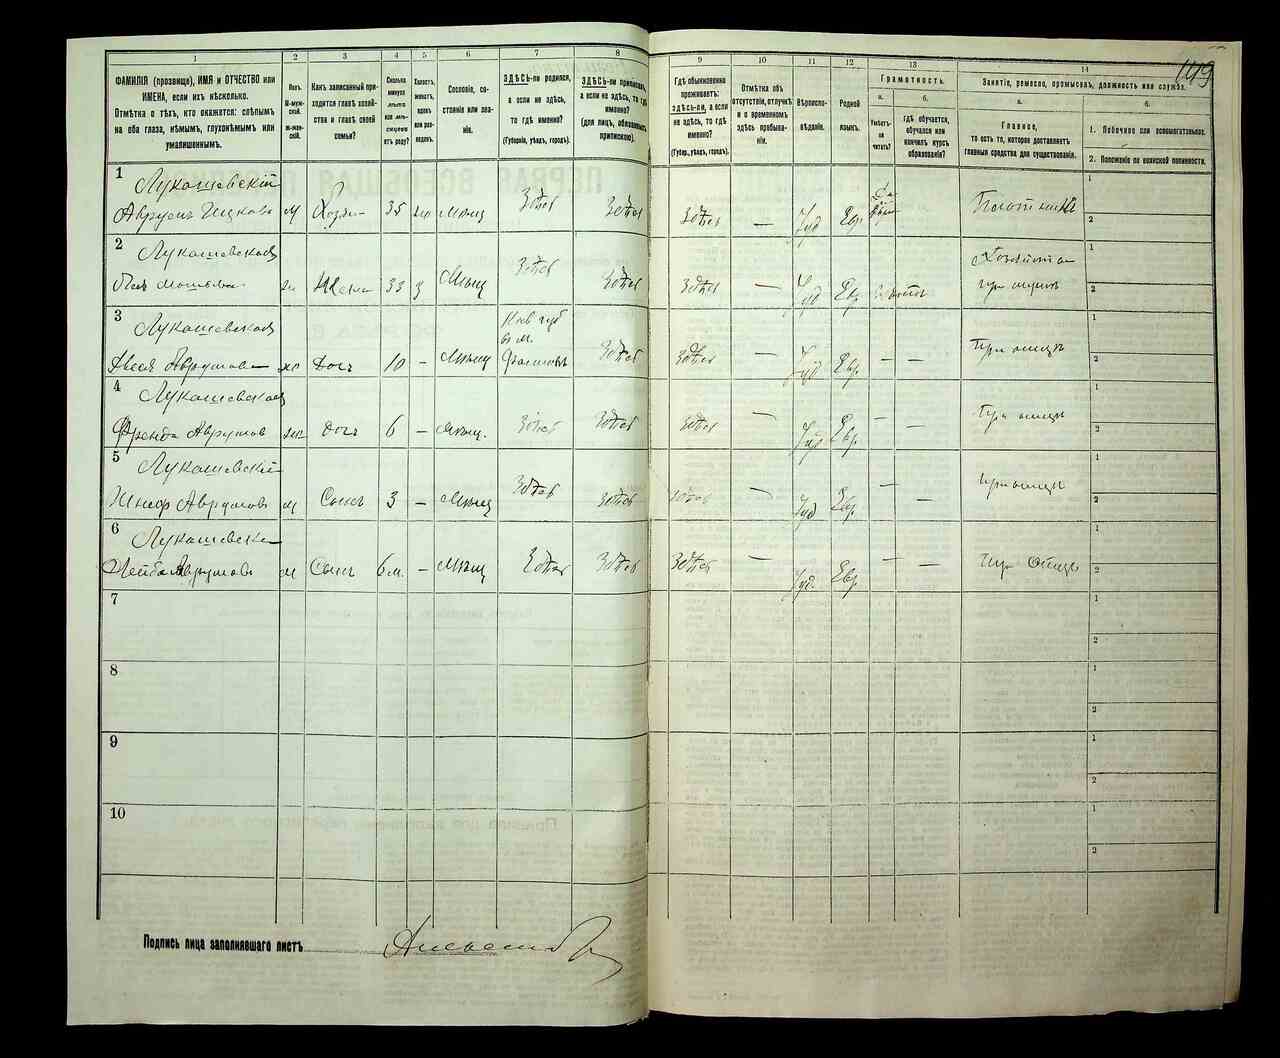 149
1 2 3 4 5 6 7 8 9 10 11 12 13 14
ФАМИЛІЯ (прозвище), ИМЯ и ОТЧЕСТВО или
ИМЕНА, если ихъ нѣсколько.
Отмѣтка о тѣхъ, кто окажется: слѣпымъ
на оба глаза, нѣмымъ, глухонѣмымъ или
умалишеннымъ.
Полъ.
М-муж-
ской.
ж-жен-
скій.
Какъ записанный при-
ходится главѣ хозяй-
ства и главѣ своей
семьи?
Сколько
минуло
лѣтъ
или мѣ-
сяцевъ
отъ роду?
Холостъ,
женатъ,
вдовъ
или раз-
веденъ.
Сословіе, со-
стояніе или зва-
ніе.
ЗДѢСЬ-ли родился,
а если не здѣсь,
то гдѣ именно?
(Губернія, уѣздъ, городъ).
ЗДѢСЬ-ли приписанъ,
а если не здѣсь, то гдѣ
именно?
(для лицъ, обязанныхъ
припискою).
Гдѣ обыкновенно
проживаетъ:
здѣсь-ли, а если
не здѣсь, то гдѣ
именно?
(Губер., уѣздъ, городъ).
Отмѣтка объ
отсутствіи, отлучкѣ
и о временномъ
здѣсь пребыва-
ніи.
Вѣроиспо-
вѣданіе.
Родной
языкъ.
Грамотность.
а.
Умѣетъ-
ли
читать?
б.
Гдѣ обучается,
обучался или
кончилъ курсъ
образованія?
Занятіе, ремесло, промыселъ, должность или служба.
а.
Главное,
то есть то, которое доставляетъ
главныя средства для существованія.
б.
1. Побочное или вспомогательное.
2. Положеніе по воинской повинности.
1 Лукашевскій
М 35 Мѣщ Здѣсь Здѣсь Здѣсь — Іуд Евр. 1 2
2 Лукашевская
Жена 33 з Мѣщ Здѣсь Здѣсь Здѣсь — Іуд Евр. 1 2
3 Лукашевская
Аврумова Дочь 10 — Мѣщ Здѣсь Здѣсь — Іуд Евр. — — При отцѣ 1 2
4 Лукашевская
Френда Аврумов Дочь 6 — Мѣщ. Здѣсь Здѣсь Здѣсь — Іуд Евр. — — При отцѣ 1 2
5 Лукашевскій
Аврумовъ М Сынъ 3 — Мѣщ Здѣсь Здѣсь Здѣсь — Іуд Евр. — — При отцѣ 1 2
6 Лукашевскі
Лейба Аврумовъ М Сынъ 6 м. — Мѣщ Здѣсь Здѣсь Здѣсь — Іуд. Евр. — — При Отцѣ 1 2
7 1 2
8 1 2
9 1 2
10 1 2
Подпись лица заполнявшаго листъ